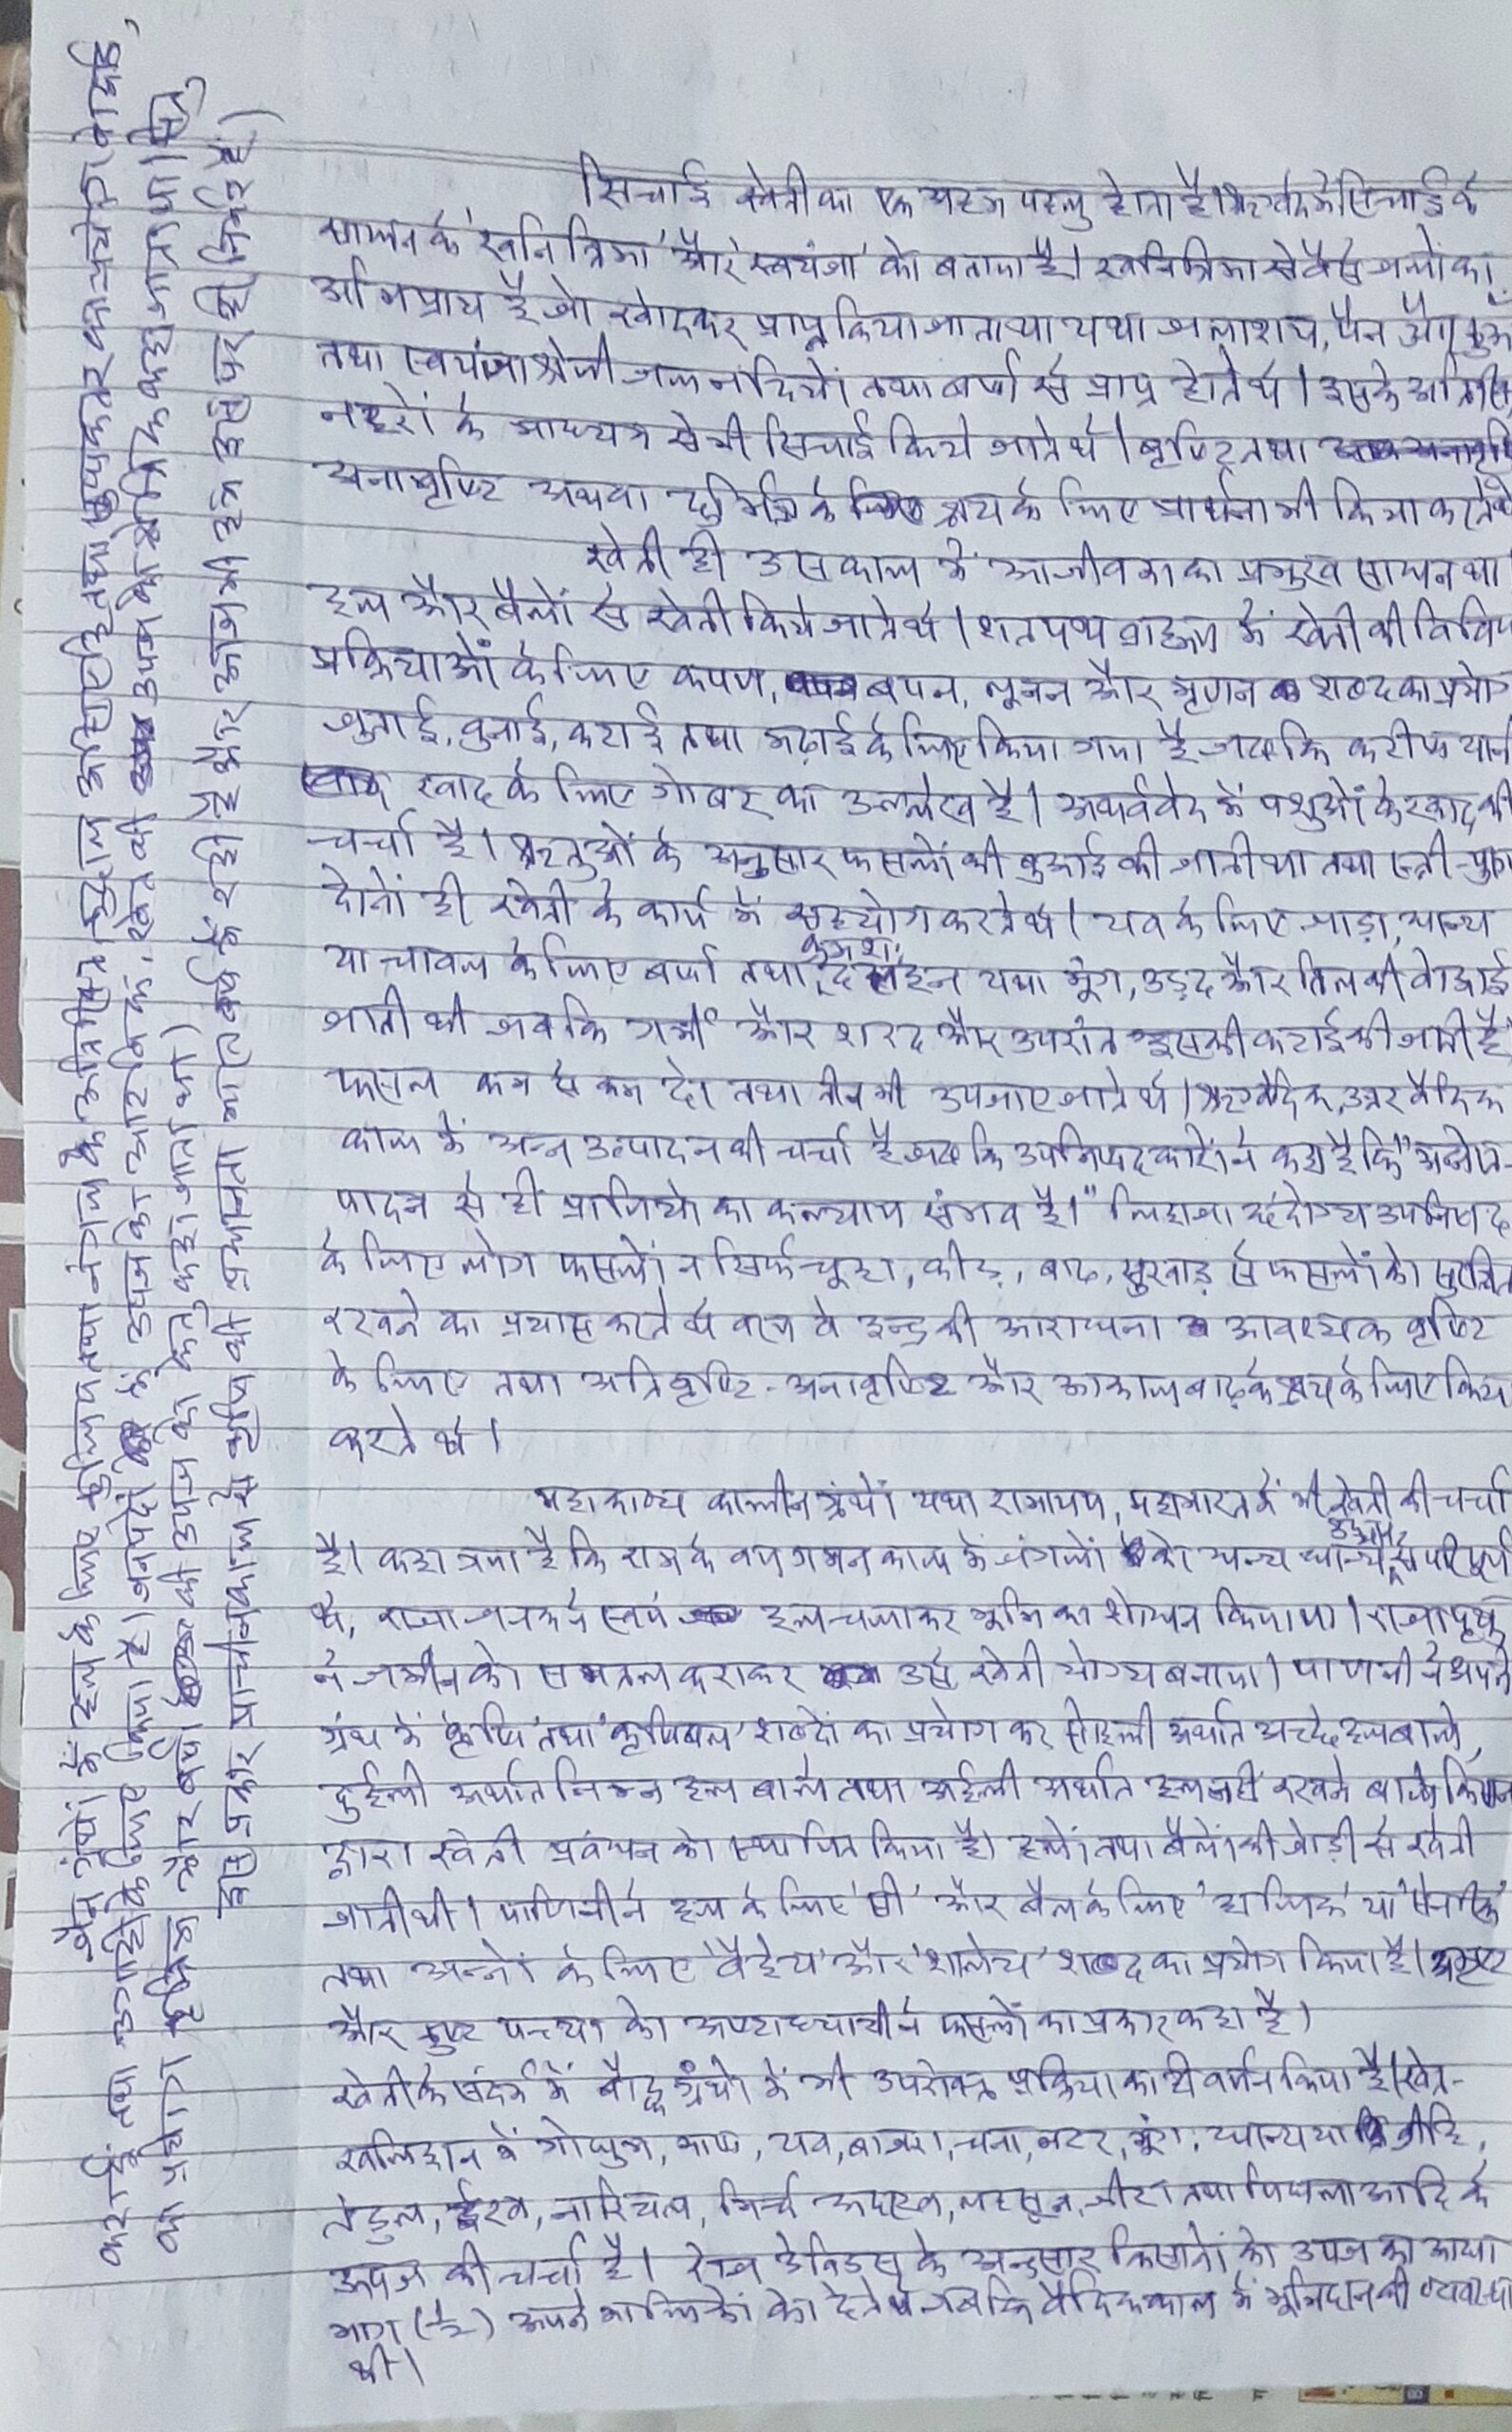 सिचाई खेती का एक अहम पहलु होता है। ऋग्वेद में सिचाई के
साधन के 'खनित्रिमा' और 'स्वयंजा' को बताया है। खनित्रिमा से वैसे जलों का
अभिप्राय है जो खोदकर प्राप्त किया जाता था यथा जलाशय, पैन और कुआँ
तथा स्वयंजा श्रेणी जल नदियों तथा बर्षा से प्राप्त होते थे। इसके अतिरिक्त
नहरों के माध्यम से भी सिचाई किये जाते थे। वृष्टि तथा
अनावृष्टि अथवा दुर्भिक्ष के क्षय के लिए प्रार्थना भी किया करते थे
खेती ही उस काल में आजीवका का प्रमुख साधन था
हल और बैलों से खेती किये जाते थे। शतपथ ब्राह्मण में खेती की विविध
प्रक्रियाओं के लिए कर्षण, बपन, लूनन और मृणन शब्द का प्रयोग
जुताई, बुनाई, कटाई तथा मढ़ाई के लिए किया गया है जबकि करीफ यानि
खाद के लिए गोबर का उल्लेख है। अथर्ववेद में पशुओं के खाद की
चर्चा है। ऋतुओं के अनुसार फसलों की बुआई की जाती था तथा स्त्री-पुरुष
दोनों ही खेती के कार्य में सहयोग करते थे। यव के लिए जाड़ा, धान्य
या चावल के लिए बर्षा तथा क्रमशः दलहन यथा मूंग, उड़द और तिल की बोआई
जाती थी जबकि गर्मी और शरद और उपरांत इसकी कटाई की जाती है
फसल कम से कम दो तथा तीन भी उपजाए जाते थे। ऋग्वैदिक, उत्तर वैदिक
काल में अन्न उत्पादन की चर्चा है जबकि उपनिषदकारों ने कहा है कि "अन्नोत-
पादन से ही प्राणियों का कल्याण संभव है।" लिहाजा छंदोग्य उपनिषद
के लिए लोग फसलों न सिर्फ चूहा, कीड़, बाढ़, सुखाड़ से फसलों को सुरक्षित
रखने का प्रयास करते थे वरन वे इन्द्र की आराधना आवश्यक वृष्टि
के लिए तथा अतिवृष्टि-अनावृष्टि और अकाल बाढ़ के क्षय के लिए किया
करते थे।
महाकाव्य कालीन ग्रंथों यथा रामायण, महाभारत में भी खेती की चर्चा
है। कहा गया है कि राम के वन गमन काल में जंगलों को धन्य धान्य से परिपूर्ण
थे, राजा जनक ने स्वयं हल चलाकर भूमि का शोधन किया था। राजा पृथु
ने जमीन को समतल कराकर उसे खेती योग्य बनाया। पाणनी ने अपने
ग्रंथ में 'कृषि' तथा 'कृषिबल' शब्दों का प्रयोग कर सोहली अर्थात अच्छे हल बाले,
दुर्हली अर्थात निम्न हल बाले तथा अहली अर्थात हल नहीं रखने बाले किसान
द्वारा खेती प्रबंधन को स्थापित किया है। हलों तथा बैलों की जोड़ी से खेती
जाती थी। पाणिनी ने हल के लिए 'सी' और बैल के लिए 'हालिक' या 'सैनरिक'
तथा अन्नों के लिए 'वैहेय' और 'शालेय' शब्द का प्रयोग किया है।
और पच्या को अष्टाध्यायी ने फसलों का प्रकार कहा है।
खेती के संदर्भ में बौद्ध ग्रंथों में भी उपरोक्त प्रक्रिया का ही वर्णन किया है। खेत-
खलिहान में गोधुम, माष, यव, बाजरा, चना, मटर, मूंग, धान्य या ब्रीहि,
तंडुल, ईख, नारियल, मिर्च अदरख, लहसून, जीरा तथा पिपला आदि के
ऊपज की चर्चा है। रीज डेविड्स के अनुसार किसानों को उपज का आधा
भाग (½) अपने मालिकों को देते थे जबकि वैदिककाल में भूमिदान की व्यवस्था
थी।
जैन ग्रंथों में हल के लिए कुलिय तथा नंगल के अतिरिक्त कुद्दाल असिएहि तथा
करने तथा ऊगाही के लिए किया है। जनपदों में उपज को आटविक, खेत की उपज को क्षेत्रिक कहा जाता था।
का प्रयोग कृत्रिम और बर्षा की उपज को केतु कहा जाता था।
इस प्रकार प्राचीनकाल से कृषि की प्रधानता भारतवर्ष में रही है और आज भी हम उस पर ही निर्भर हैं।